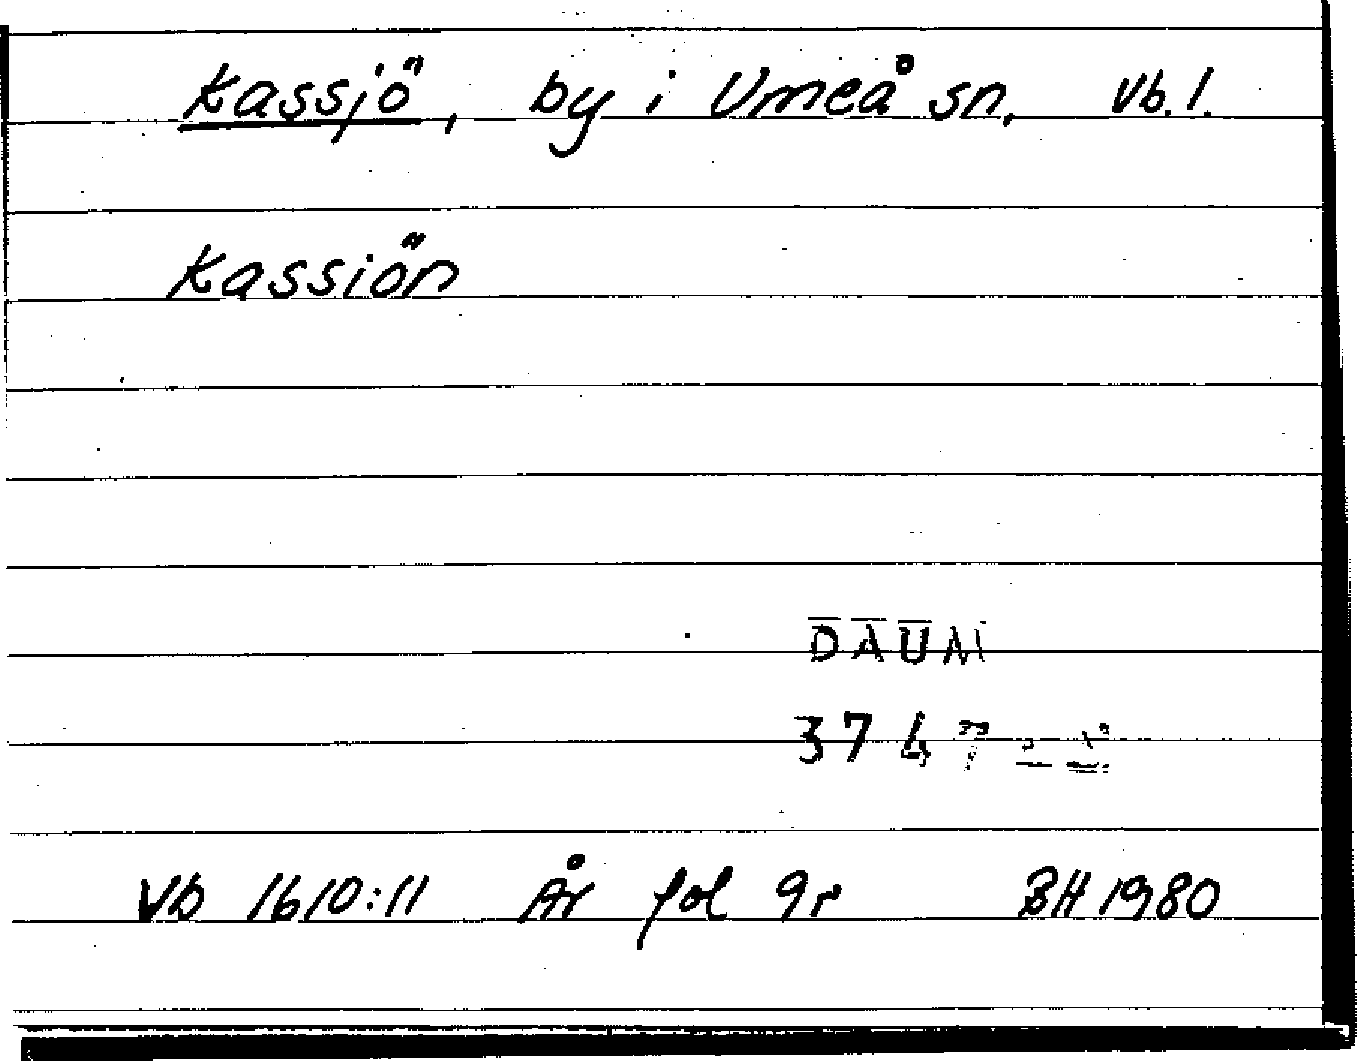 Kassjö, by i Umeå sn, Vb. l.
Kassiön
DAUM
Vb 1610:11 År fol 9r BH 1980